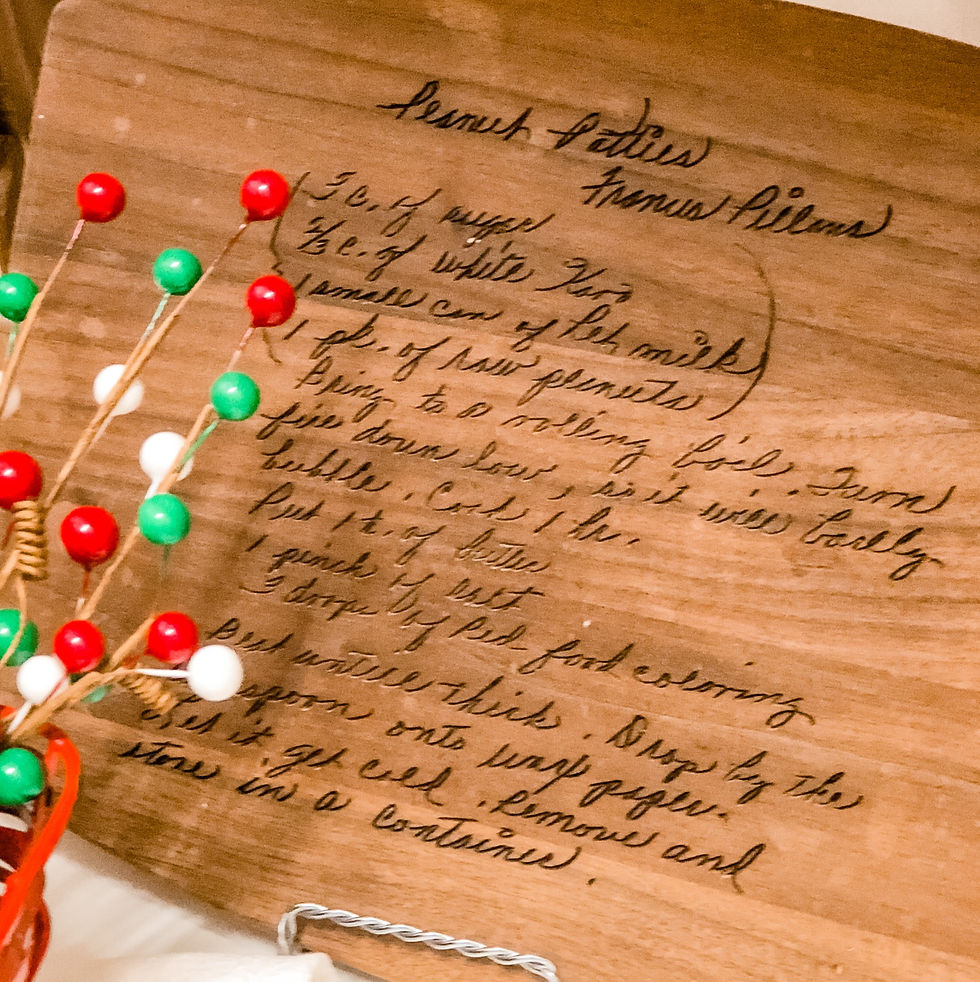 Peanut Patties
Francis Pillans
3 c. of sugar
2/3 c. of white Karo
1 small can of Pet milk
1 pk. of raw peanuts
Bring to a rolling boil. Turn
fire down low, so it will barely
bubble. Cook 1 hr.
Put 1 t. of butter
1 pinch of salt
3 drops of Red food coloring
Beat untill thick. Drop by the
spoon onto wax paper.
Let it get cold. Remove and
store in a container.